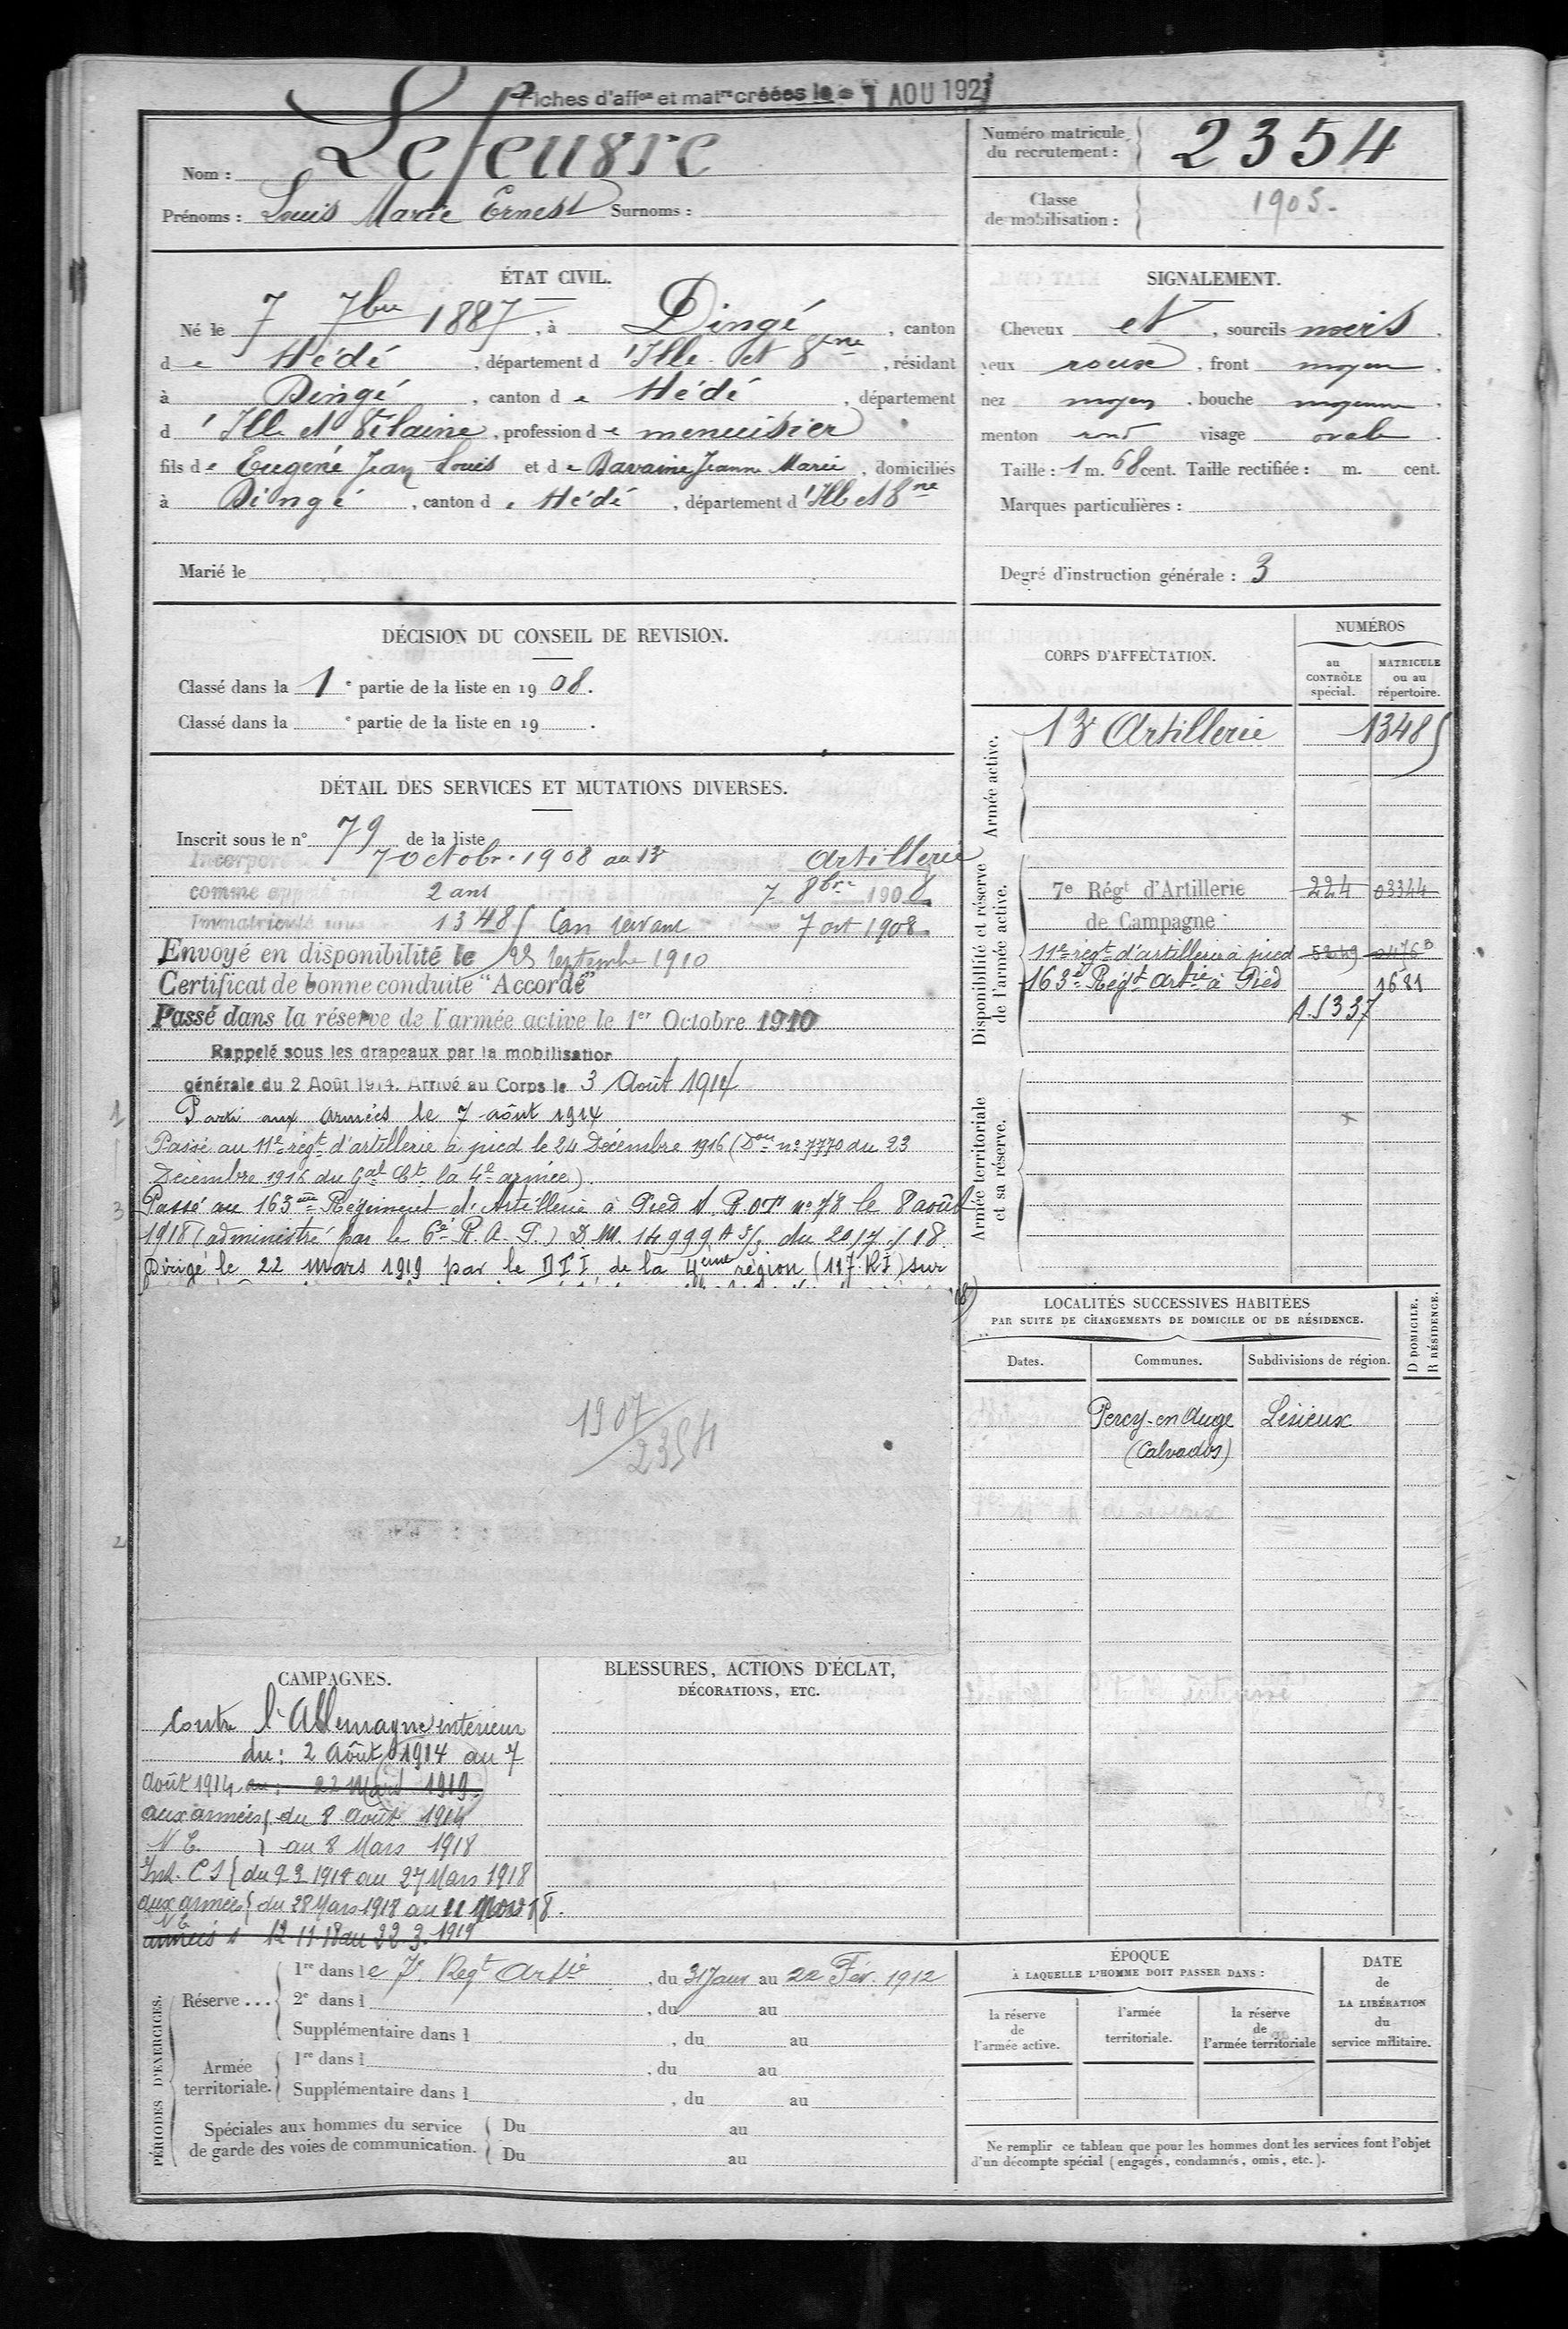 Fiches d'affon et matrc créées le 1 AOU 1927
Nom : Lefeuvre
Prénoms : Louis Marie Ernest Surnoms :
Numéro matricule du recrutement : 2354
Classe de mobilisation : 1905.
ÉTAT CIVIL.
Né le 7 7bre 1887, à Dingé, canton
de Hédé, département d'Ille et Vne, résidant
à Dingé, canton de Hédé, département
d'Ille et Vilaine, profession de menuisier
fils de Eugène Jean Louis et de Davaine Jeanne Marie, domiciliés
à Dingé, canton de Hédé, département d'Ille et Vne
Marié le
SIGNALEMENT.
Cheveux et, sourcils noirs.
yeux roux, front moyen.
nez moyen, bouche moyenne.
menton rond visage ovale.
Taille : 1 m. 68 cent. Taille rectifiée : m. cent.
Marques particulières :
Degré d'instruction générale : 3
DÉCISION DU CONSEIL DE REVISION.
Classé dans la 1e partie de la liste en 1908.
Classé dans la e partie de la liste en 19 .
DÉTAIL DES SERVICES ET MUTATIONS DIVERSES.
Inscrit sous le n° 79 de la liste
Incorporé 7 octobre 1908 au 13e Artillerie
comme appelé 2 ans 7 8bre 1908
Immatriculé sous 13485 Can servant 7 oct 1908
Envoyé en disponibilité le 25 Septembre 1910
Certificat de bonne conduite "Accordé"
Passé dans la réserve de l'armée active le 1er Octobre 1910
Rappelé sous les drapeaux par la mobilisation
générale du 2 Août 1914. Arrivé au Corps le 3 Août 1914
1 Parti aux armées le 7 août 1914
Passé au 11e régt d'artillerie à pied le 24 Décembre 1916 (Don n° 7770 du 23
Décembre 1916 du Gal Ct la 4e armée).
3 Passé au 163me Régiment d'Artillerie à Pied n° 78 le 8 août
1918 (administré par le 6e R. A. P.) D.M. 14999 du 20/7/18
Dirigé le 22 mars 1919 par le DTI de la 4ème région (117 RI) sur
1907/2354
2
CORPS D'AFFECTATION.
NUMÉROS
au CONTRÔLE spécial.
MATRICULE ou au répertoire.
Armée active.
13e Artillerie 13485
Disponibilité et réserve de l'armée active.
7e Régt d'Artillerie 224 03344
de Campagne
11e régt d'artillerie à pied 5249 04763
163e Régt Artie à Pied 1681
A.S 337
Armée territoriale et sa réserve.
LOCALITÉS SUCCESSIVES HABITÉES
PAR SUITE DE CHANGEMENTS DE DOMICILE OU DE RÉSIDENCE.
Dates. Communes. Subdivisions de région. D DOMICILE. R RÉSIDENCE.
Percy-en Auge Lisieux
(Calvados)
CAMPAGNES.
Contre l'Allemagne intérieur
du : 2 Août 1914 au 7
Août 1914 au : 22 Mars 1919.
aux armées du 8 Août 1914
N E. au 8 Mars 1918
Int. C S du 9 3 1918 au 27 Mars 1918
aux armées du 28 Mars 1918 au 11 Nov 18.
N E
armées 12 11 18 au 22.3.1919
BLESSURES, ACTIONS D'ÉCLAT,
DÉCORATIONS, ETC.
PÉRIODES D'EXERCICES.
Réserve ... 1re dans le 7e Regt Artie, du 31 Janv au 22 Fév. 1912
2e dans l , du au
Supplémentaire dans l , du au
Armée territoriale. 1re dans l , du au
Supplémentaire dans l , du au
Spéciales aux hommes du service Du au
de garde des voies de communication. Du au
ÉPOQUE
À LAQUELLE L'HOMME DOIT PASSER DANS :
la réserve de l'armée active.
l'armée territoriale.
la réserve de l'armée territoriale
DATE de LA LIBÉRATION du service militaire.
Ne remplir ce tableau que pour les hommes dont les services font l'objet
d'un décompte spécial (engagés, condamnés, omis, etc.).